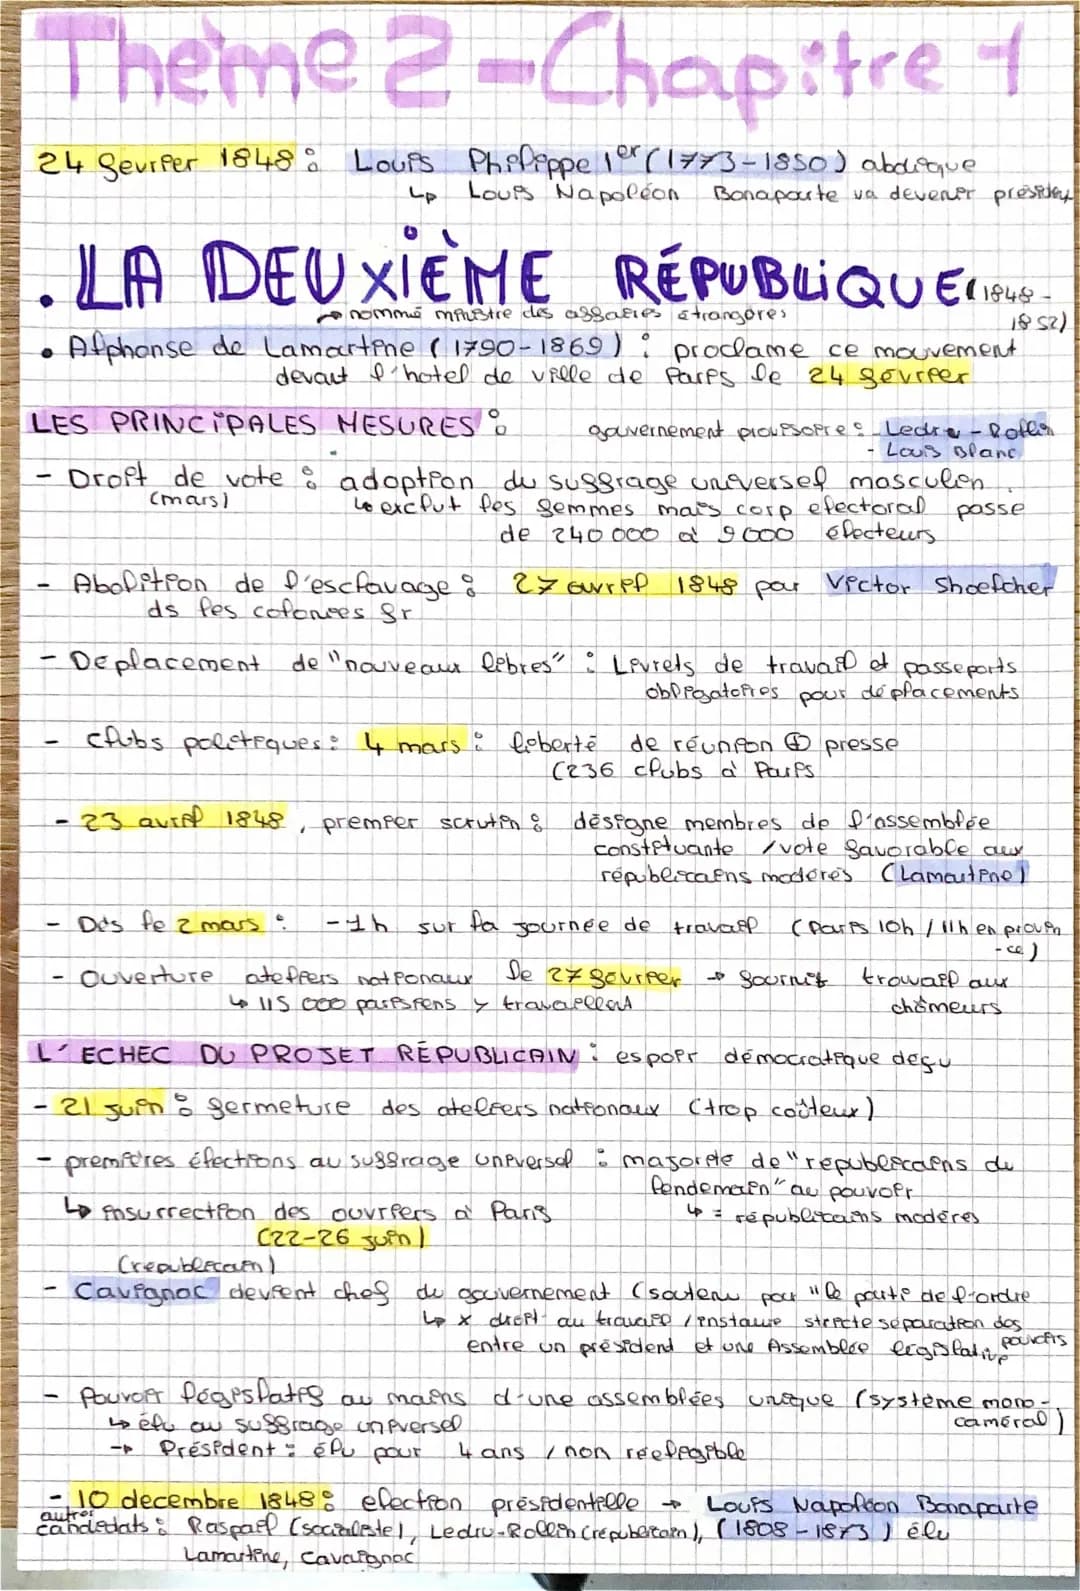 Thème 2 - Chapitre 1
24 fevrier 1848 : Louis Philippe 1er (1773-1850) abdique
↳ Louis Napoléon Bonaparte va devenir président
. LA DEUXIÈME RÉPUBLIQUE (1848-
1852)
→ nommé ministre des affaires étrangères
• Alphonse de Lamartine (1790-1869) : proclame ce mouvement
devant l'hotel de ville de Paris le 24 février
LES PRINCIPALES MESURES :
gouvernement provisoire : - Ledru-Rollin
- Louis Blanc
- Droit de vote : adoption du suffrage universel masculin.
(mars) ↳ exclut les femmes mais corp electoral passe
de 240 000 à 9000 électeurs
- Abolition de l'esclavage : 27 avril 1848 par Victor Shoelcher
ds les colonies fr
- Deplacement de "nouveaux libres" : Livrets de travail et passeports
obligatoires pour déplacements
- clubs politiques : 4 mars : liberté de réunion ⊕ presse
(236 clubs à Paris
- 23 avril 1848, premier scrutin : désigne membres de l'assemblée
constituante / vote favorable aux
républicains modérés (Lamartine)
- Dès le 2 mars : -1h sur la journée de travail (Paris 10h / 11h en provin
-ce)
- Ouverture ateliers nationaux le 27 février → fournit travail aux
↳ 115 000 parisiens y travaillent chômeurs
L'ECHEC DU PROJET RÉPUBLICAIN : espoir démocratique déçu
- 21 juin : fermeture des ateliers nationaux (trop coûteux)
- premières élections au suffrage universel : majorité de "républicains du
lendemain" au pouvoir
↳ insurrection des ouvriers à Paris ↳ = républicains modérés
(22-26 juin)
(republicain)
- Cavignac devient chef du gouvernement (soutenu par "le parti de l'ordre
↳ x droit au travail / instaure stricte séparation des
pouvoirs
entre un président et une Assemblée législative
- Pouvoir législatif au mains d'une assemblées unique (système mono-
caméral)
↳ élu au suffrage universel
→ Président : élu pour 4 ans / non réeligible
- 10 decembre 1848 : election présidentielle → Louis Napoléon Bonaparte
autres
candidats : Raspail (socialiste), Ledru-Rollin (républicain), (1808-1873) élu
Lamartine, Cavaignac